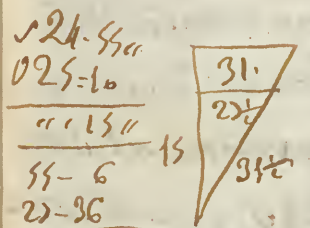 24-55
025=10
15
15
55-6
23-36
31.
23½
35½